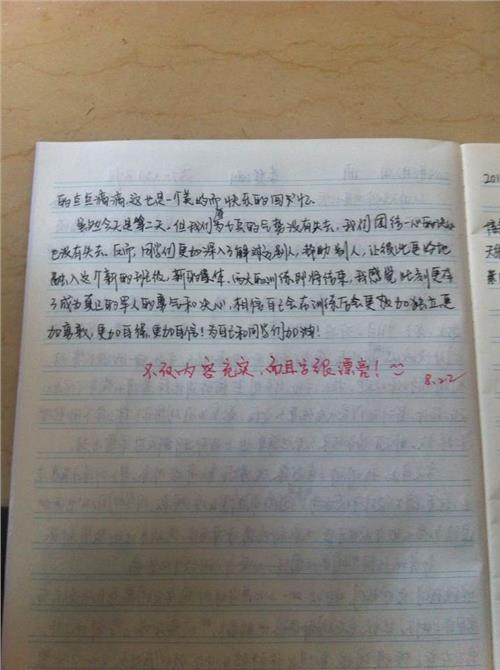 的点点滴滴,这也是一个美好而快乐的回忆。
虽然今天是第二天,但我们的勇气没有失去,我们团结一心的决心
也没有失去。反而,同学们更加深入了解对方别人,帮助别人,让彼此更好地
融入这个新的班级,新的集体。两天的训练即将结束,我感觉此刻更有
了成为真正的军人的勇气和决心,相信自己会在训练后会更加独立,更
加勇敢,更加自强,更加自信!为自己和同学们加油!
不仅内容充实,而且字很漂亮!
8.22
201
天